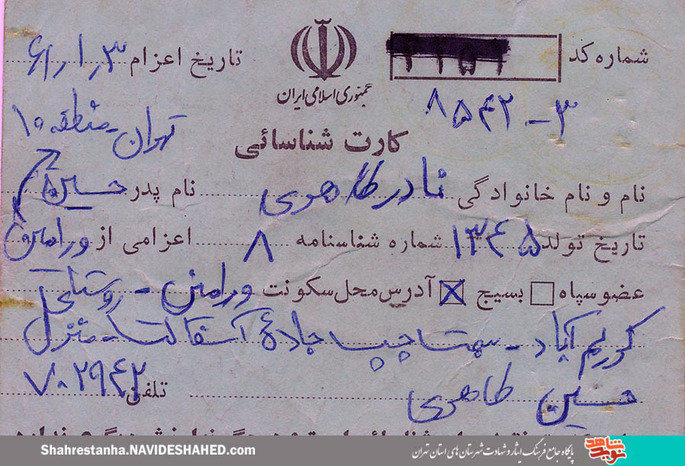 شماره کد
تاریخ اعزام ۶۱/۱/۳
جمهوری اسلامی ایران
۸۵۴۲-۳
تهران - منطقه ۱۰
کارت شناسائی
نام و نام خانوادگی نادر طاهری نام پدر حسین
تاریخ تولد ۱۳۴۵ شماره شناسنامه ۸ اعزامی از ورامین
عضو سپاه بسیج آدرس محل سکونت ورامین - روستای
کریم آباد - سمت چپ جاده آسفالت - منزل
حسین طاهری تلفن ۷۰۲۹۴۲
Shahrestanha.NAVIDESHAHED.com
پایگاه جامع فرهنگ ایثار و شهادت شهرستان های استان تهران
نوید شاهد